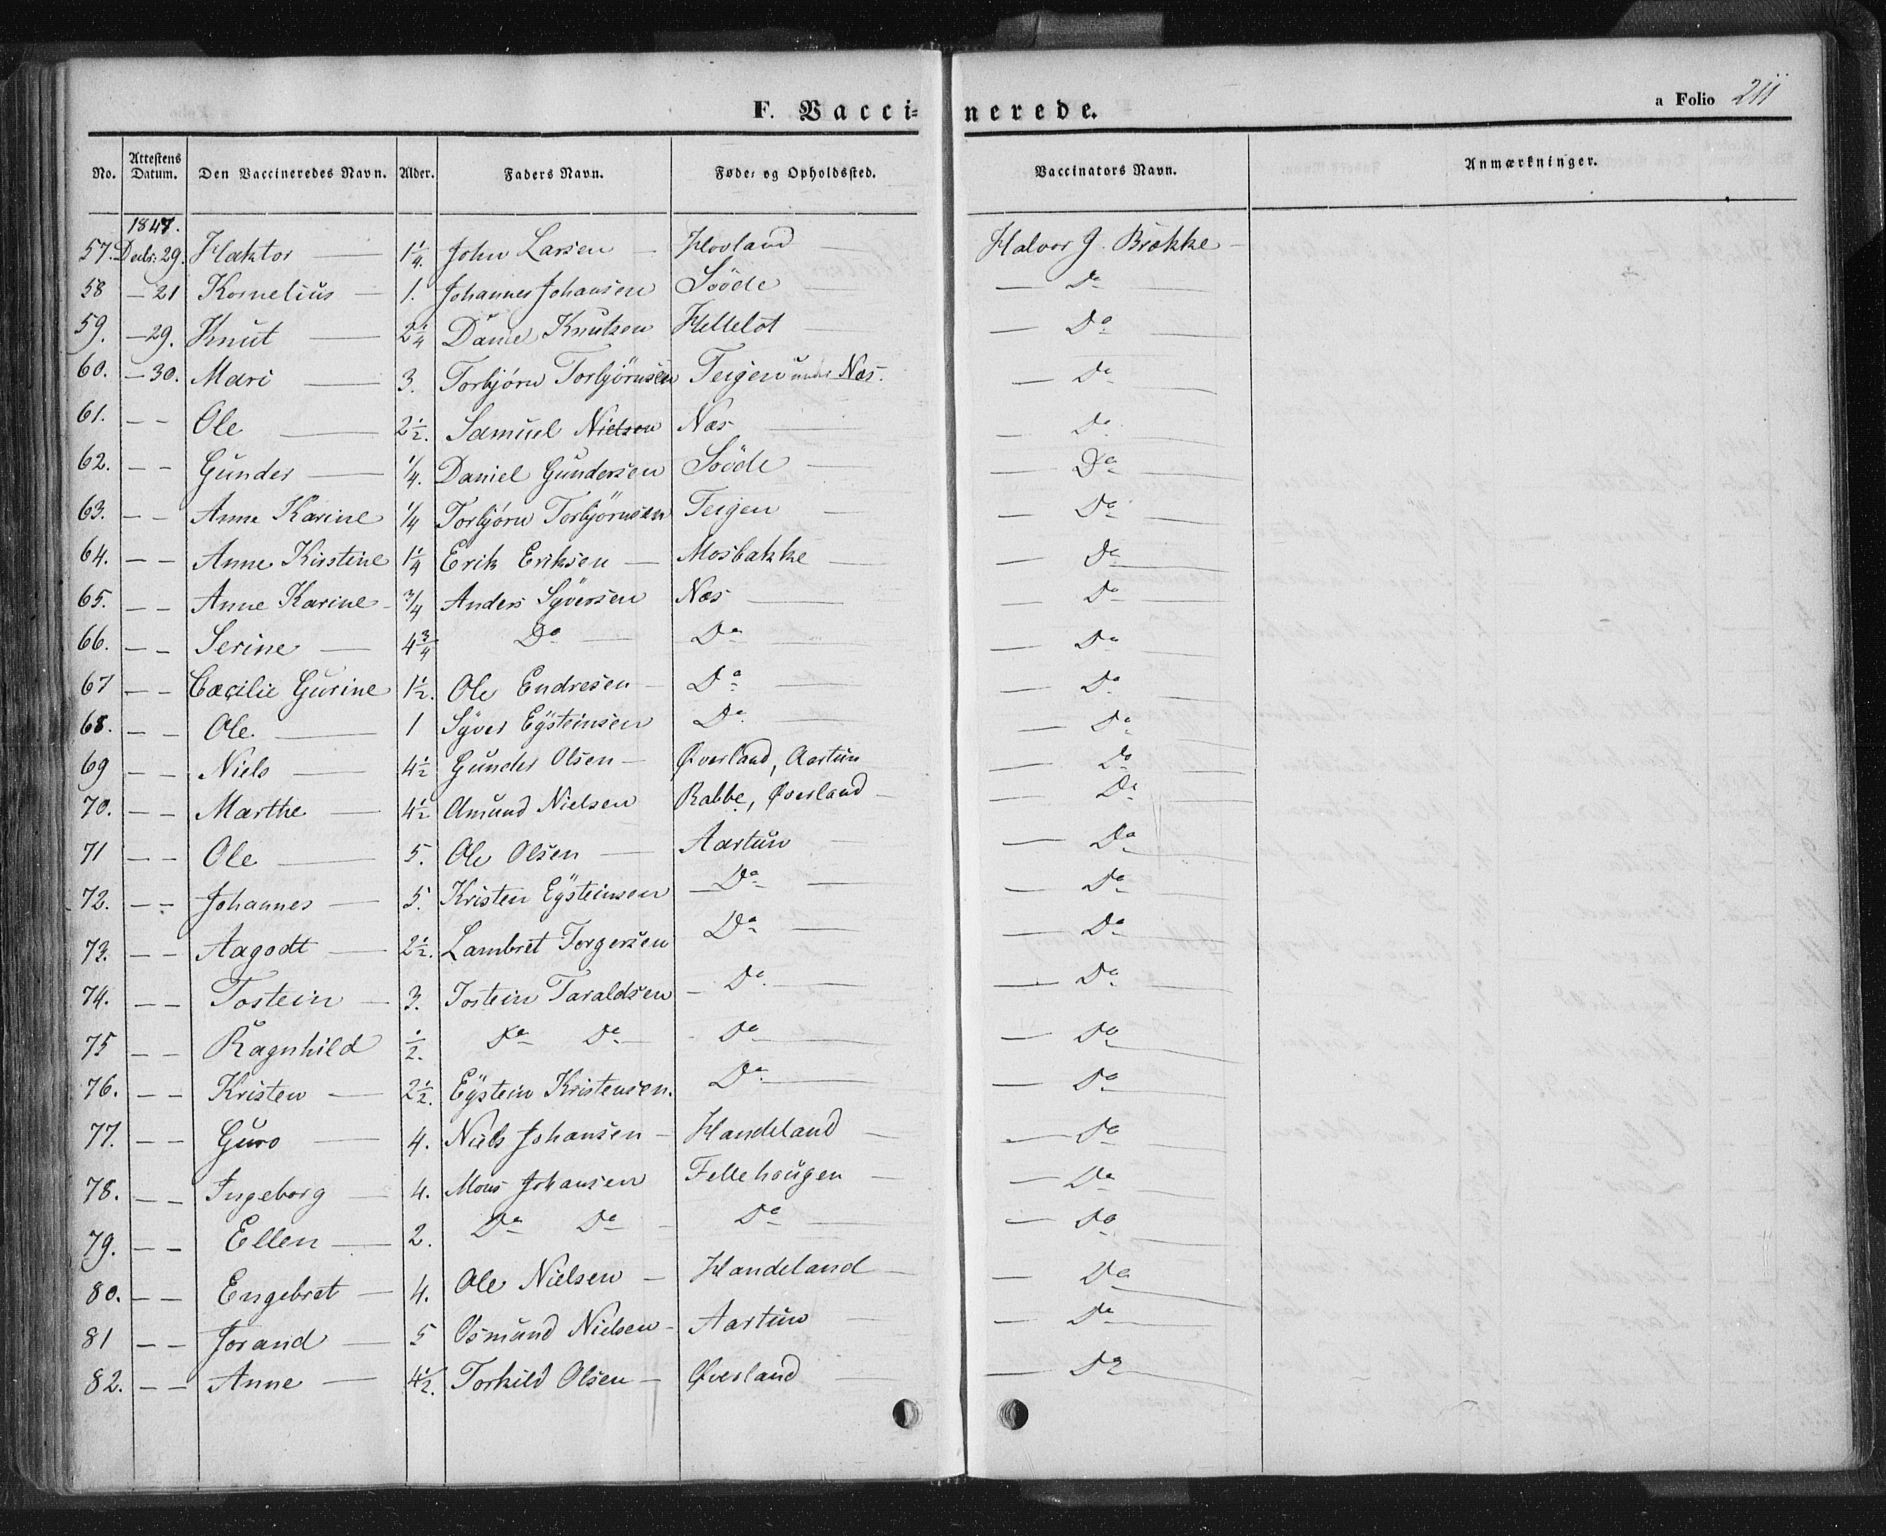 F. Vaccinerede. a Folio 211
No. Attestens Datum. Den Vaccineredes Navn. Alder. Faders Navn. Føde- og Opholdssted. Vaccinators Navn. Anmærkninger.
1847.
57. Decbr: 29. Haktor — 1 1/4. John Larsen — Hovland — Halvor J. Brække —
58 — 21 Kornelius — 1. Johannes Johansen Sööde — — Do —
59. — 29. Knut — 2 1/4 Daniel Knutsen Hellelot — — Do —
60. — 30. Mari — 3. Torbjörn Torbjörnsen Teigen under Næs. — Do —
61. — — Ole — 2 1/2. Samuel Nielsen Næs — — Do —
62. — — Gunder — 1/4. Daniel Gundersen Sööde — — Do —
63. — — Anne Karine 1/4 Torbjörn Torbjörnsen Teigen — — Do —
64. — — Anne Kirstine 1 1/4 Erik Eriksen — Mosbakke — — Do —
65. — — Anne Karine — 3/4 Anders Syversen Næs — — Do —
66. — — Serine — 4 3/4 Do — Do — — Do —
67 — — Cæcilie Gurine 1 1/2. Ole Endresen — Do — — Do —
68. — — Ole. — 1 Syver Eysteinsen Do — — Do —
69 — — Niels — 4 1/2 Gunder Olsen — Øverland, Aartun — Do —
70. — — Marthe — 4 1/2 Amund Nielsen Rabbe, Øverland — — Do —
71 — — Ole — 5. Ole Olsen — Aartun — — Do —
72. — — Johannes — 5. Kristen Eysteinsen — Do — — Do —
73. — — Aagodt — 2 1/2. Lambret Torgersen Do — — Do —
74. — — Tostein — 3. Tostein Taraldsen — Do — — Do —
75 — — Ragnhild 1/2. Do Do — Do — — Do —
76. — — Kristen — 2 1/2. Eystein Kristensen. Do — — Do —
77. — — Guro — 4. Niels Johansen — Handeland — — Do —
78. — — Ingeborg — 4. Mons Johansen Fellehougen — — Do —
79. — — Ellen — 2. Do Do — Do — — Do —
80. — — Engebret — 4. Ole Nielsen — Handeland — — Do —
81 — — Jorand — 5 Osmund Nielsen — Aartun — — Do —
82. — — Anne — 4 1/2. Torkild Olsen — Øverland — — Do —